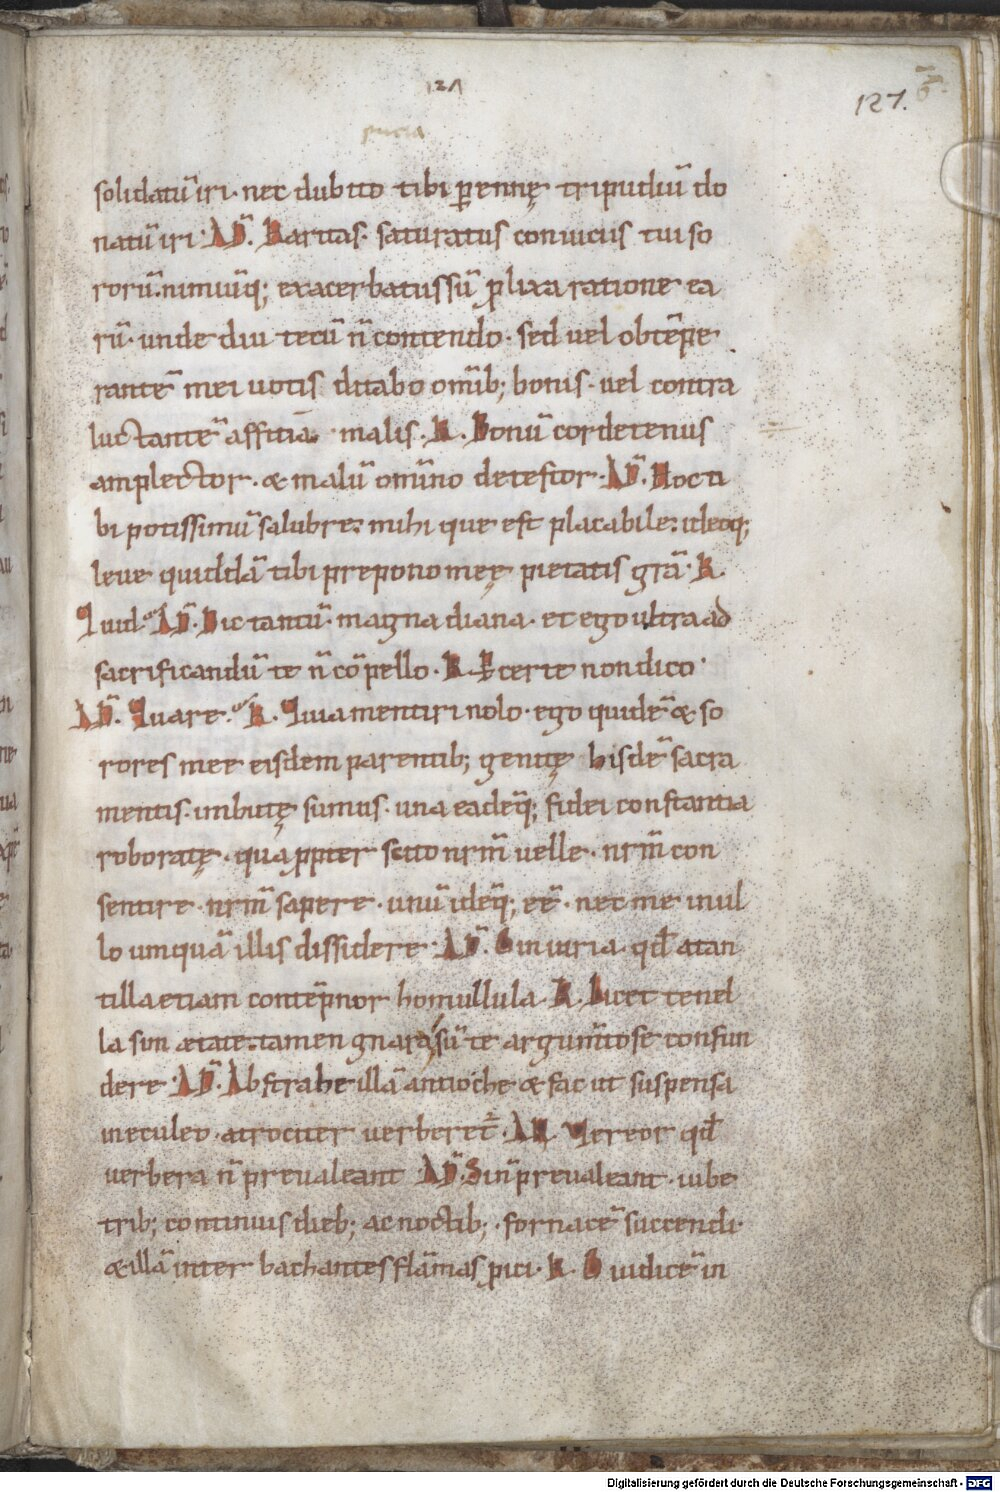 121
127. 6
solidatū iri · nec dubito tibi ꝑennę tripudiū do
natū iri · AD̄. Karitas · saturatus conuiciis tui so
rorū. nimiūq; exacerbatus sū ꝓlixa ratione ea
rū · unde diu tecū n̄ contendo · sed uel obtēpe
rantē mei uotis ditabo om̄ib; bonis · uel contra
luctantē afficiā · malis · K. Bonū cordetenus
amplector · & malū om̄ino detestor · AD̄. Hoc ti
bi potissimū salubre: mihi que est placabile: ideoq;
leue quiddā tibi prepono meę pietatis gr̄a · K.
Quid. AD̄. Dic tantū · magna diana · et ego ultra ad
sacrificandū te n̄ cōpello · K. ꝑ certe non dico ·
AD̄. Quare. K. Quia mentiri nolo · ego quidē & so
rores mee eisdem parentib; genitę hisdē sacra
mentis · imbutę sumus · una eadēq; fidei constantia
roboratę · quapp̱ter scito nr̄m uelle · nr̄m con
sentire · nr̄m sapere · unū idēq; eē · nec me in ul
lo umquā illis dissidere · AD̄. O iniuria · qd̄ a tan
tilla etiam contēpnor homullula · K. Licet tenel
la sim ætate: tamen gnara sū te argum̄tose confun
dere · AD̄. Abstrahe illā antioche & fac ut suspensa
in eculeo · atrociter uerberet̄ · AN. Vereor qd̄
uerbera n̄ preualeant AD̄. Si n̄ preualeant · iube
trib; continuis dieb; ac noctib; · fornacē succendi ·
& illā inter bachantes flāmas ꝓici · K. O iudicē in
Digitalisierung gefördert durch die Deutsche Forschungsgemeinschaft - DFG